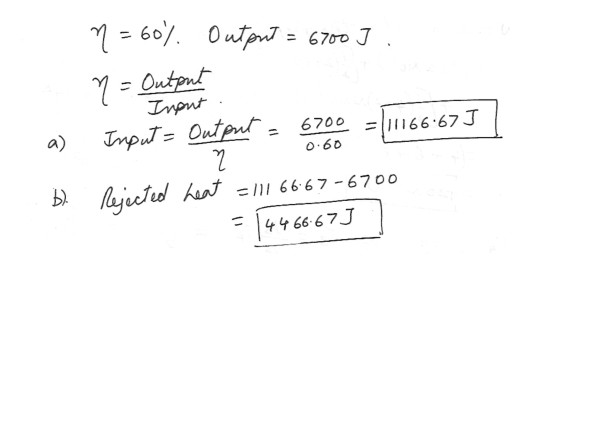 η = 60%. Output = 6700 J.
η = Output / Input.
a) Input = Output / η = 6700 / 0.60 = 11166.67 J
b). Rejected heat = 11166.67 - 6700
= 4466.67 J